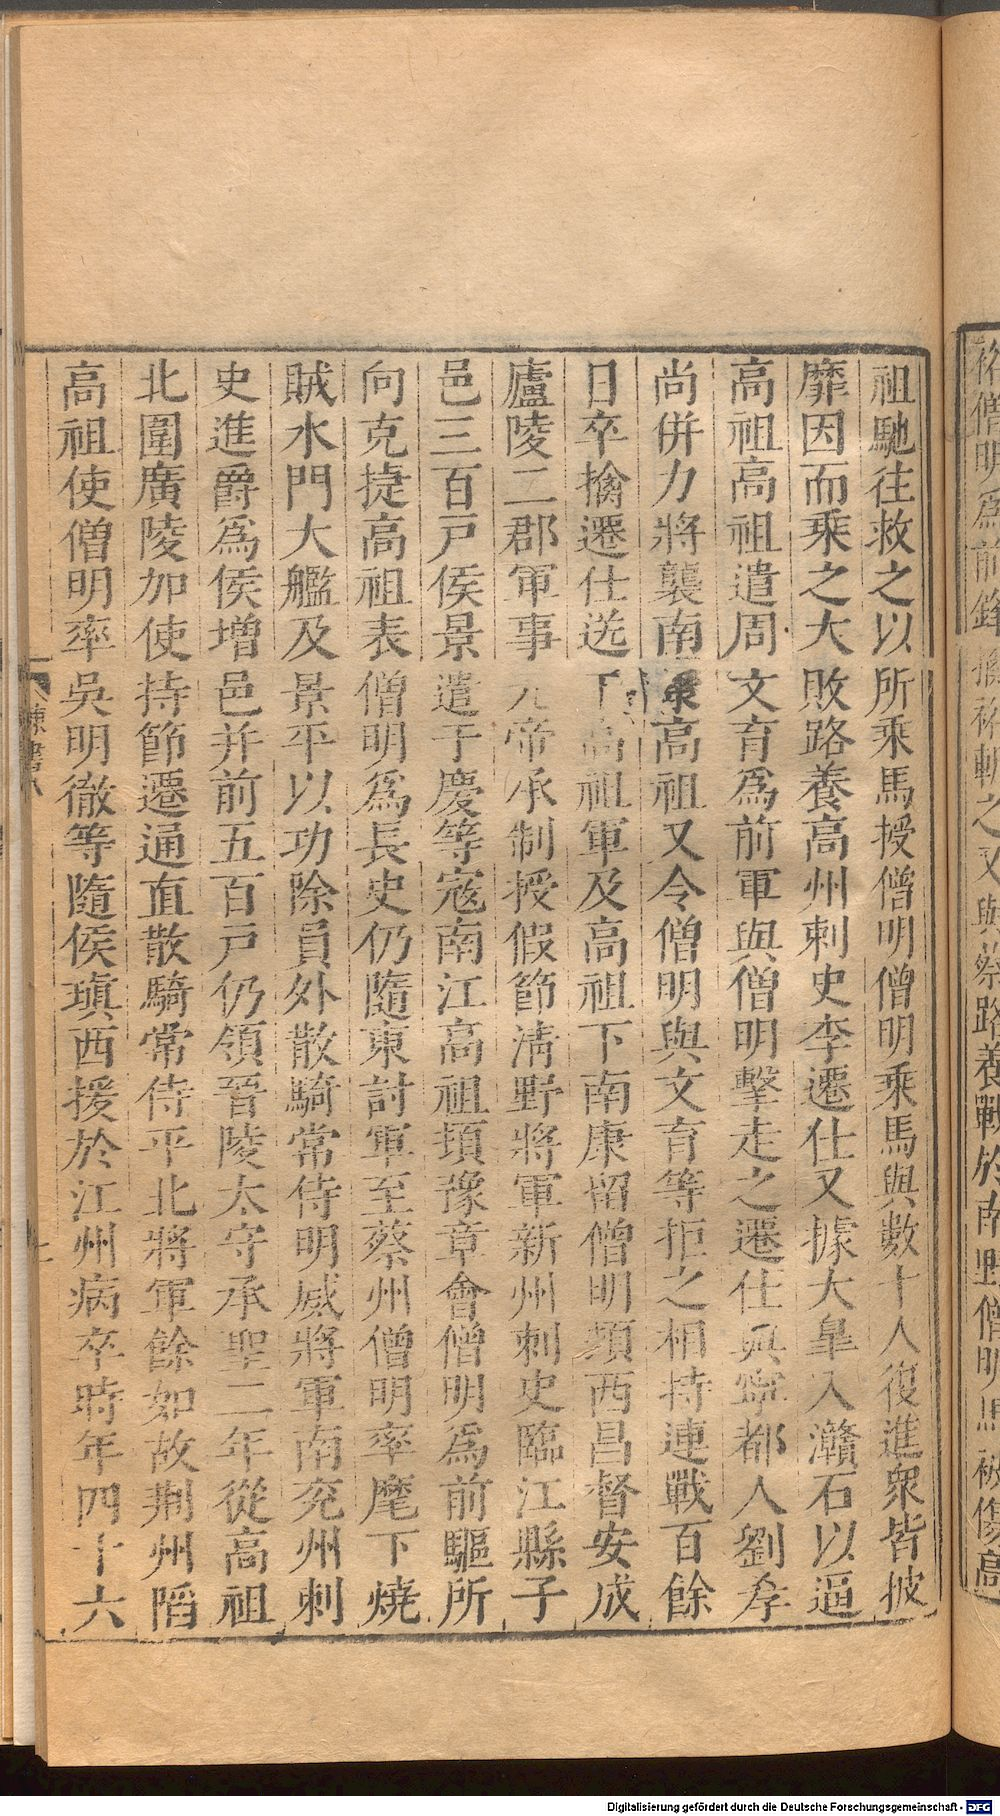 祖馳往救之以所乘馬授僧明僧明乘馬與數十人復進衆皆披
靡因而乘之大敗路養高州刺史李遷仕又據大臯入灨石以逼
高祖高祖遣周文育爲前軍與僧明擊走之遷仕與寧都人劉孝
尚併力將襲南康高祖又令僧明與文育等拒之相持連戰百餘
日卒擒遷仕送 高祖軍及高祖下南康留僧明頓西昌督安成
廬陵二郡軍事元帝承制授假節清野將軍新州刺史臨江縣子
邑三百戸侯景遣于慶等寇南江高祖頓豫章會僧明爲前驅所
向克捷高祖表僧明爲長史仍隨東討軍至蔡州僧明率麾下燒
賊水門大艦及景平以功除員外散騎常侍明威將軍南兗州刺
史進爵爲侯增邑并前五百戸仍領晉陵太守承聖二年從高祖
北圍廣陵加使持節遷通直散騎常侍平北將軍餘如故荊州陷
高祖使僧明率吳明徹等隨侯瑱西援於江州病卒時年四十六
祐僧明爲前鋒擒祐斬之又與蔡路養戰於南野僧明馬被傷高
陳書八
Digitalisierung gefördert durch die Deutsche Forschungsgemeinschaft - DFG